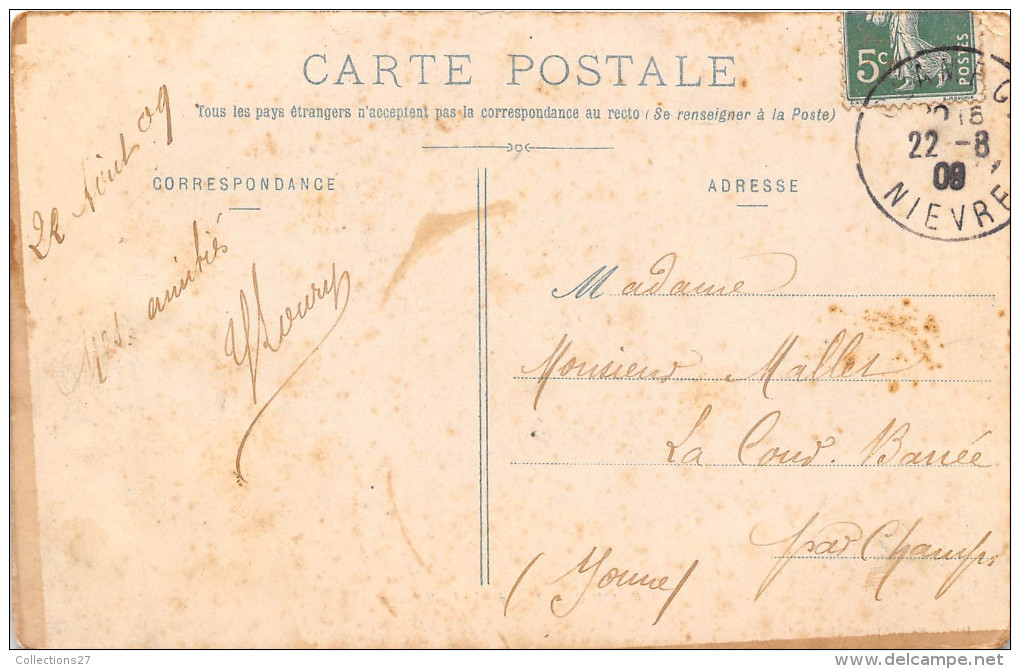 CARTE POSTALE
Tous les pays étrangers n'acceptent pas la correspondance au recto (Se renseigner à la Poste)
CORRESPONDANCE
22 Août 09
Mes amitiés
ADRESSE
5c
POSTES
22 - 8
09
NIEVRE
Madame
Monsieur Mallet
La Cour Barrée
par Champs
(Yonne)
Collections27
delcampe.net